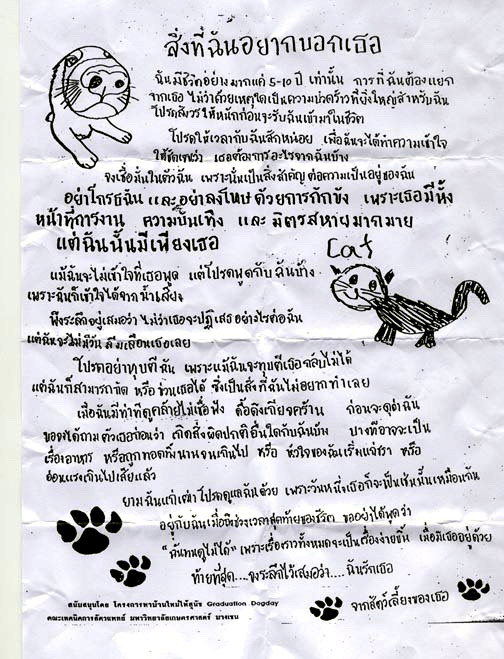 สิ่งที่ฉันอยากบอกเธอ
ฉันมีชีวิตอย่างมากแค่ 5-10 ปี เท่านั้น การที่ฉันต้องแยก
จากเธอ ไม่ว่าด้วยเหตุใดเป็นความปวดร้าวที่ยิ่งใหญ่สำหรับฉัน
โปรดสังวรให้หนักก่อนจะรับฉันเข้ามาในชีวิต
โปรดให้เวลากับฉันสักหน่อย เพื่อฉันจะได้ทำความเข้าใจ
ให้ชัดเจนว่า เธอต้องการอะไรจากฉันบ้าง
จงเชื่อมั่นในตัวฉัน เพราะนั่นเป็นสิ่งสำคัญต่อความเป็นอยู่ของฉัน
อย่าโกรธฉัน และอย่าลงโทษด้วยการกักขัง เพราะเธอมีทั้ง
หน้าที่การงาน ความบันเทิง และ มิตรสหายมากมาย
แต่ฉันนั้นมีเพียงเธอ
Cat
แม้ฉันจะไม่เข้าใจที่เธอพูด แต่โปรดพูดกับฉันบ้าง
เพราะฉันก็เข้าใจได้จากน้ำเสียง
พึงระลึกอยู่เสมอว่า ไม่ว่าเธอจะปฏิเสธอย่างไรต่อฉัน
แต่ฉันจะไม่มีวัน ลืมเลือนเธอเลย
โปรดอย่าทุบตีฉัน เพราะแม้ฉันจะทุบตีเธอกลับไม่ได้
แต่ฉันก็สามารถกัด หรือข่วนเธอได้ ซึ่งเป็นสิ่งที่ฉันไม่อยากทำเลย
เมื่อฉันมีท่าทีดูคล้ายไม่เชื่อฟัง ดื้อดึงเกียจคร้าน ก่อนจะดุด่าฉัน
ขอจงได้ถามตัวเธอก่อนว่า เกิดสิ่งผิดปกติอื่นใดกับฉันบ้าง บางทีอาจจะเป็น
เรื่องอาหาร หรือถูกทอดทิ้งนานจนเกินไป หรือ หัวใจของฉันเริ่มแก่ชรา หรือ
อ่อนแรงเกินไปเสียแล้ว
ยามฉันแก่เฒ่าโปรดดูแลฉันด้วย เพราะวันหนึ่งเธอก็จะเป็นเช่นนั้นเหมือนกัน
อยู่กับฉันเมื่อถึงช่วงเวลาสุดท้ายของชีวิต ขออย่าได้พูดว่า
"ฉันทนดูไม่ได้" เพราะเรื่องราวทั้งหมดจะเป็นเรื่องง่ายขึ้น เมื่อมีเธออยู่ด้วย
ท้ายที่สุด....จงระลึกไว้เสมอว่า....ฉันรักเธอ
จากสัตว์เลี้ยงของเธอ
สนับสนุนโดย โครงการหาบ้านใหม่ให้ดุนัข Graduation Dogday
คณะเทคนิคการสัตวแพทย์ มหาวิทยาลัยเกษตรศาสตร์ บางเขน